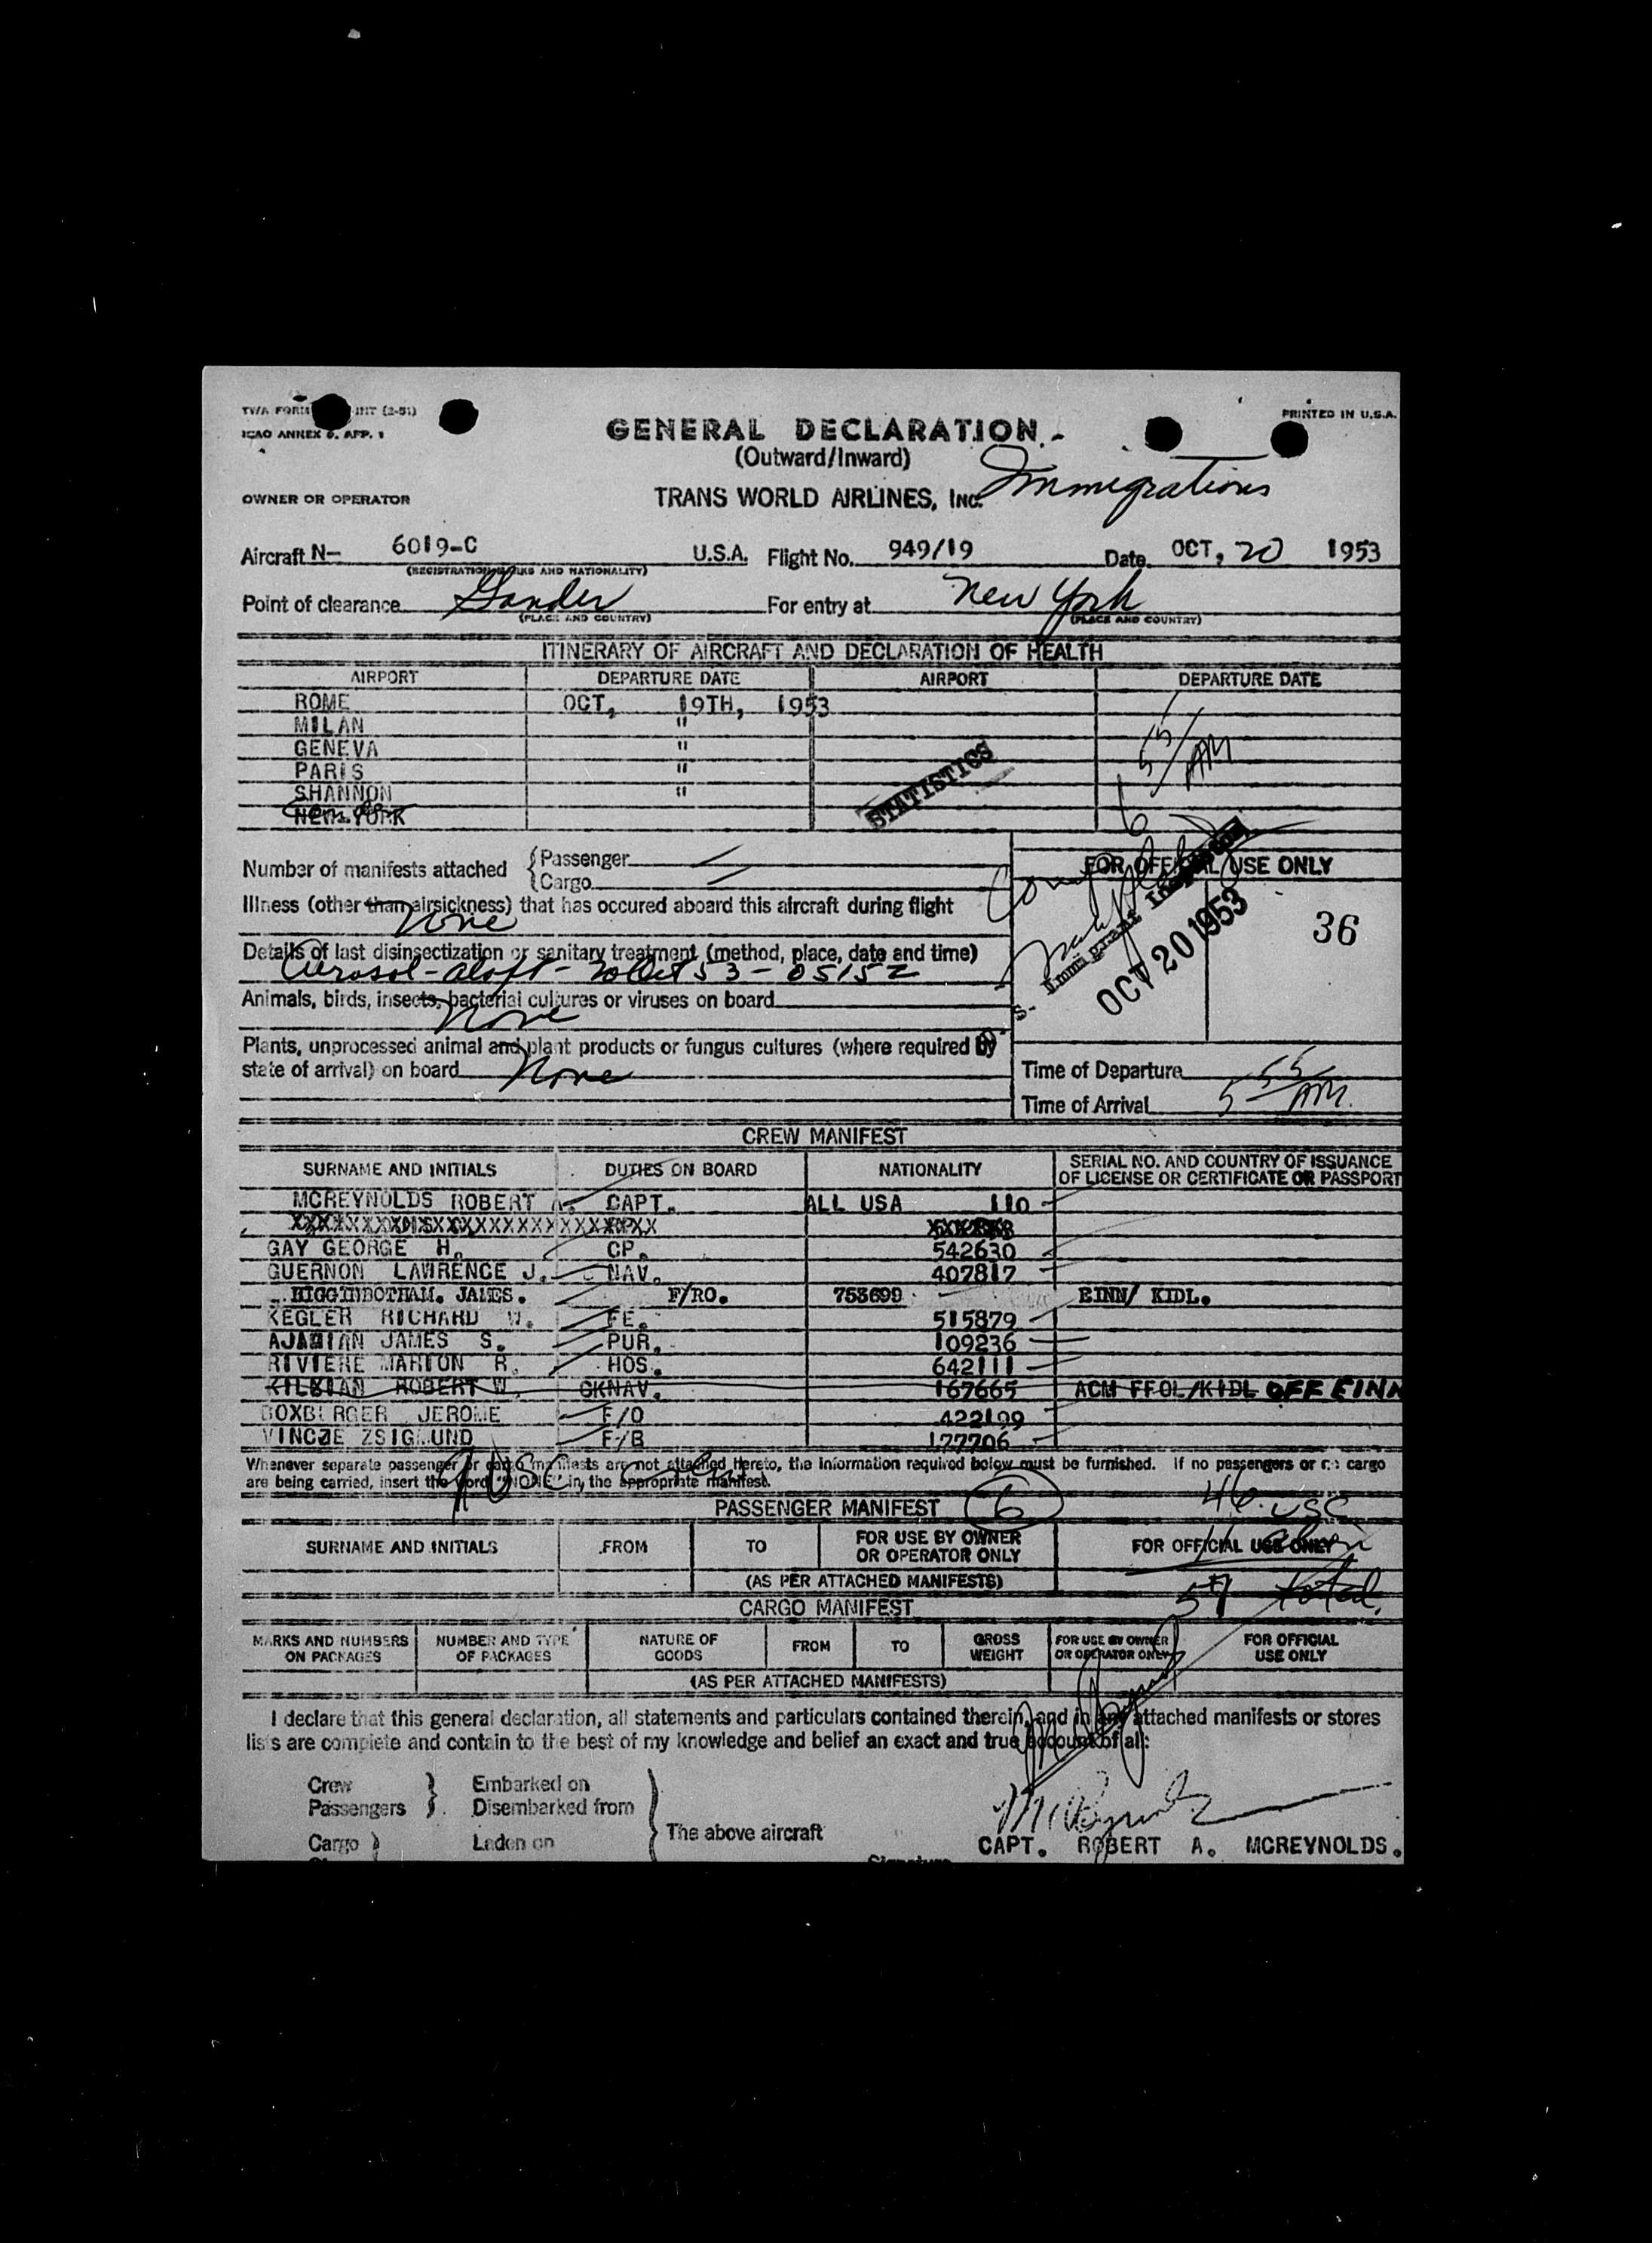 TWA FORM INT (2-51)
ICAO ANNEX 9. APP. 1
PRINTED IN U.S.A.
GENERAL DECLARATION
(Outward/Inward)
OWNER OR OPERATOR
TRANS WORLD AIRLINES, INC.
Immigrations
Aircraft N- 6019-C U.S.A. Flight No. 949/19 Date OCT, 20 1953
(REGISTRATION MARKS AND NATIONALITY)
Point of clearance Gander For entry at New York
(PLACE AND COUNTRY) (PLACE AND COUNTRY)
ITINERARY OF AIRCRAFT AND DECLARATION OF HEALTH
AIRPORT DEPARTURE DATE AIRPORT DEPARTURE DATE
ROME OCT, 19TH, 1953
MILAN "
GENEVA "
PARIS "
SHANNON "
NEW YORK
STATISTICS
6 55 AM
Number of manifests attached { Passenger
Cargo
FOR OFFICIAL USE ONLY
Illness (other than airsickness) that has occured aboard this aircraft during flight
None
36
Details of last disinsectization or sanitary treatment (method, place, date and time)
Aerosol-aloft-20 Oct 53-0515Z
U. S. Immigrant Inspector
OCT 20 1953
Animals, birds, insects, bacterial cultures or viruses on board
None
Plants, unprocessed animal and plant products or fungus cultures (where required by
state of arrival) on board None
Time of Departure
Time of Arrival 5 55 AM.
CREW MANIFEST
SURNAME AND INITIALS DUTIES ON BOARD NATIONALITY SERIAL NO. AND COUNTRY OF ISSUANCE
OF LICENSE OR CERTIFICATE OR PASSPORT
MCREYNOLDS ROBERT A. CAPT. ALL USA 110
GAY GEORGE H. CP. 542630
GUERNON LAWRENCE J. NAV. 407817
HIGGINBOTHAM. JAMES. F/RO. 753699 EINN/ KIDL.
KEGLER RICHARD W. FE. 515879
AJAMIAN JAMES S. PUR. 109236
RIVIERE MARION R. HOS. 642111
KILKIAN ROBERT W. CKNAV. 167665 ACM FFOL/KIDL OFF EINN
BOXBERGER JEROME F/O 422199
VINCZE ZSIGMUND F/B 177706
Whenever separate passenger or cargo manifests are not attached hereto, the information required below must be furnished. If no passengers or no cargo
are being carried, insert the word "NONE" in the appropriate manifest.
PASSENGER MANIFEST 6
46 USC
SURNAME AND INITIALS FROM TO FOR USE BY OWNER
OR OPERATOR ONLY
FOR OFFICIAL USE ONLY
11 alien
(AS PER ATTACHED MANIFESTS)
57 total.
CARGO MANIFEST
MARKS AND NUMBERS
ON PACKAGES
NUMBER AND TYPE
OF PACKAGES
NATURE OF
GOODS
FROM TO GROSS
WEIGHT
FOR USE BY OWNER
OR OPERATOR ONLY
FOR OFFICIAL
USE ONLY
(AS PER ATTACHED MANIFESTS)
I declare that this general declaration, all statements and particulars contained therein, and in any attached manifests or stores
lists are complete and contain to the best of my knowledge and belief an exact and true account of all:
Crew } Embarked on
Passengers Disembarked from
Cargo } Laden on
The above aircraft
McReynolds
CAPT. ROBERT A. MCREYNOLDS.
Signature